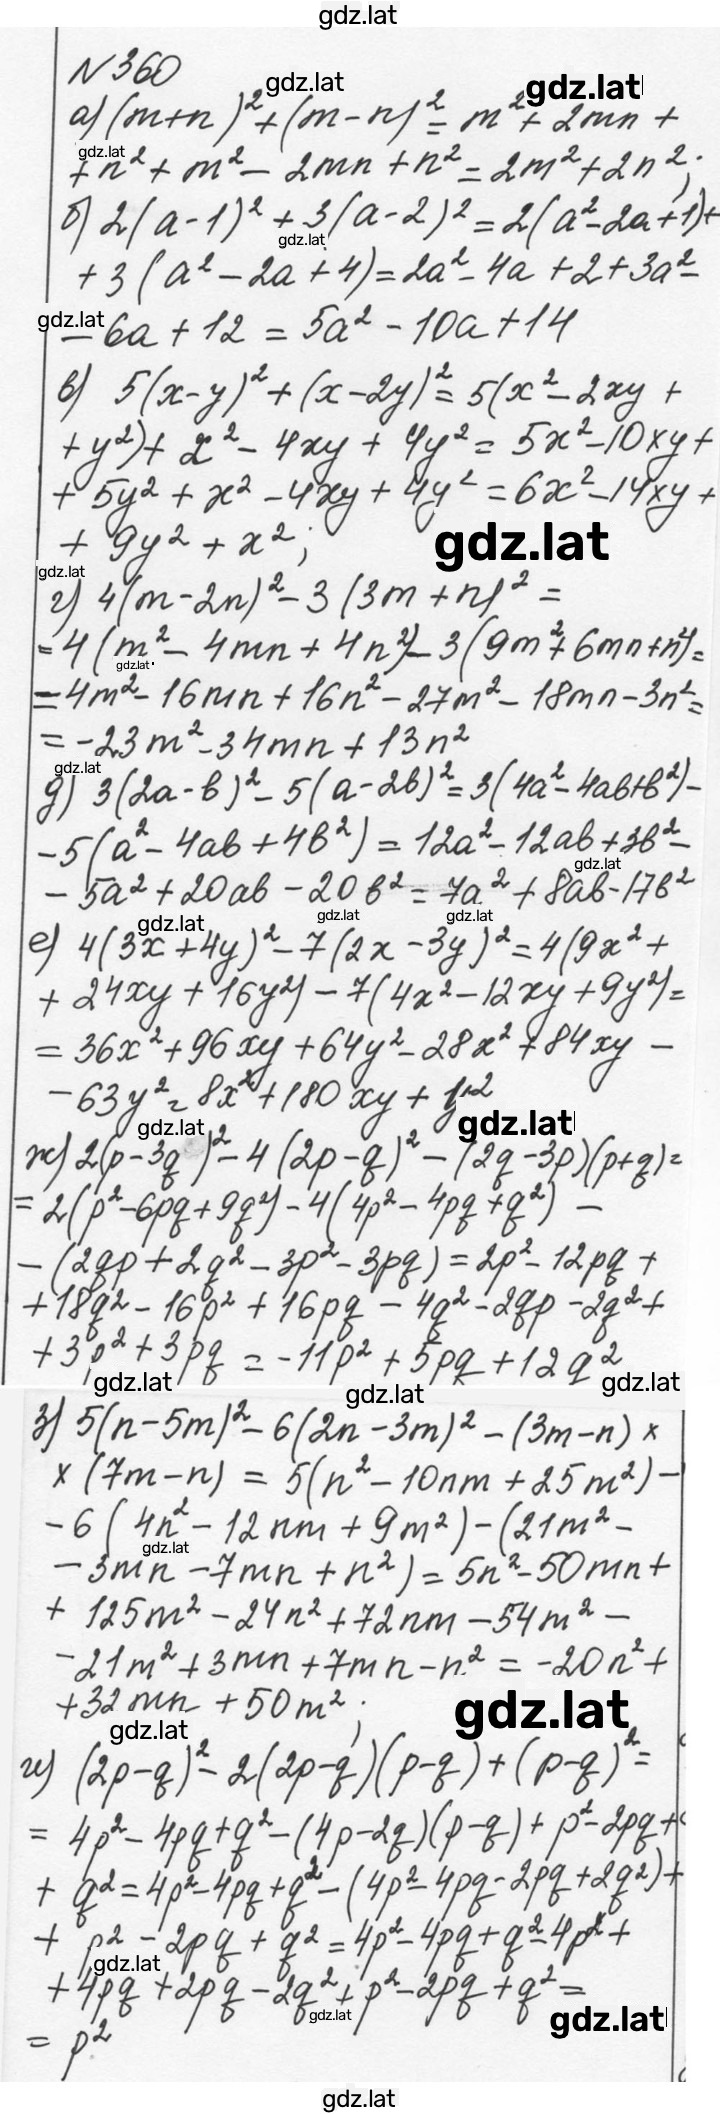 gdz.lat
N 360
gdz.lat
gdz.lat
а) (m+n)² + (m-n)² = m² + 2mn +
gdz.lat
+ n² + m² - 2mn + n² = 2m² + 2n²;
б) 2(a-1)² + 3(a-2)² = 2(a²-2a+1)+
gdz.lat
+3 (a² - 2a + 4) = 2a² - 4a + 2 + 3a² -
gdz.lat
- 6a + 12 = 5a² - 10a + 14
в) 5(x-y)² + (x-2y)² = 5(x² - 2xy +
+ y²) + x² - 4xy + 4y² = 5x² - 10xy +
+ 5y² + x² - 4xy + 4y² = 6x² - 14xy +
+ 9y² + x²;
gdz.lat
gdz.lat
г) 4(m-2n)² - 3 (3m + n)² =
= 4 (m² - 4mn + 4n²) - 3 (9m² + 6mn + n²) =
gdz.lat
= 4m² - 16mn + 16n² - 27m² - 18mn - 3n² =
= -23m² - 34mn + 13n²
gdz.lat
д) 3(2a-b)² - 5(a-2b)² = 3(4a² - 4ab + b²) -
- 5(a² - 4ab + 4b²) = 12a² - 12ab + 3b² -
gdz.lat
- 5a² + 20ab - 20b² = 7a² + 8ab - 17b²
gdz.lat
gdz.lat
gdz.lat
е) 4(3x+4y)² - 7(2x-3y)² = 4(9x² +
+ 24xy + 16y²) - 7(4x² - 12xy + 9y²) =
= 36x² + 96xy + 64y² - 28x² + 84xy -
- 63y² = 8x² + 180xy + y²
gdz.lat
gdz.lat
ж) 2(p-3q)² - 4(2p-q)² - (2q-3p)(p+q) =
= 2(p² - 6pq + 9q²) - 4(4p² - 4pq + q²) -
- (2qp + 2q² - 3p² - 3pq) = 2p² - 12pq +
+ 18q² - 16p² + 16pq - 4q² - 2qp - 2q² +
+ 3p² + 3pq = -11p² + 5pq + 12q²
gdz.lat
gdz.lat
gdz.lat
з) 5(n-5m)² - 6(2n-3m)² - (3m-n) ×
× (7m-n) = 5(n² - 10nm + 25m²) -
- 6 (4n² - 12nm + 9m²) - (21m² -
gdz.lat
- 3mn - 7mn + n²) = 5n² - 50mn +
+ 125m² - 24n² + 72nm - 54m² -
- 21m² + 3mn + 7mn - n² = -20n² +
+ 32mn + 50m²;
gdz.lat
gdz.lat
и) (2p-q)² - 2(2p-q)(p-q) + (p-q)² =
= 4p² - 4pq + q² - (4p-2q)(p-q) + p² - 2pq +
+ q² = 4p² - 4pq + q² - (4p² - 4pq - 2pq + 2q²) +
+ p² - 2pq + q² = 4p² - 4pq + q² - 4p² +
gdz.lat
+ 4pq + 2pq - 2q² + p² - 2pq + q² =
gdz.lat
gdz.lat
= p²
gdz.lat